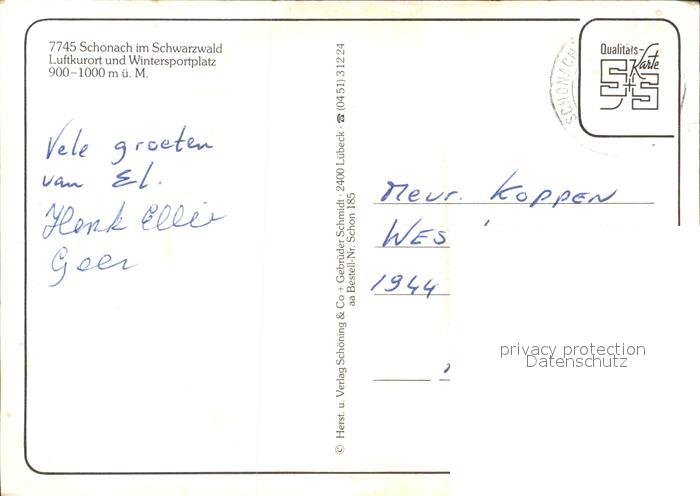 7745 Schonach im Schwarzwald
Luftkurort und Wintersportplatz
900–1000 m ü. M.
Vele groeten
van El.
Henk Ellie
Geer
© Herst. u. Verlag Schöning & Co + Gebrüder Schmidt · 2400 Lübeck · ☎ (04 51) 3 12 24
aa Bestell-Nr. Schon 185
SCHONACH
Qualitäts-
Karte
S+S
Mevr. KOPPEN
WES
1944
privacy protection
Datenschutz